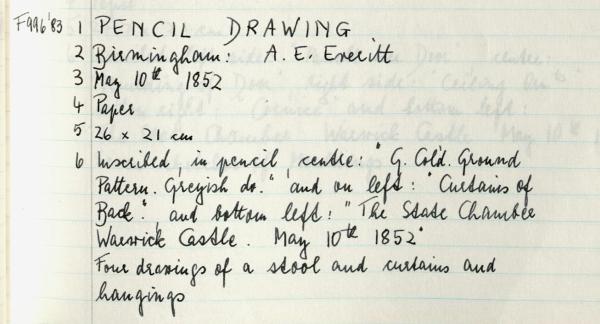 F996'83 1 PENCIL DRAWING
2 Birmingham: A. E. Everitt
3 May 10th 1852
4 Paper
5 26 x 21 cm
6 Inscribed, in pencil, centre: "G. Cold. Ground
Pattern. Greyish do." and on left: "Curtains of
Back", and bottom left: "The State Chamber
Warwick Castle. May 10th 1852"
Four drawings of a stool and curtains and
hangings